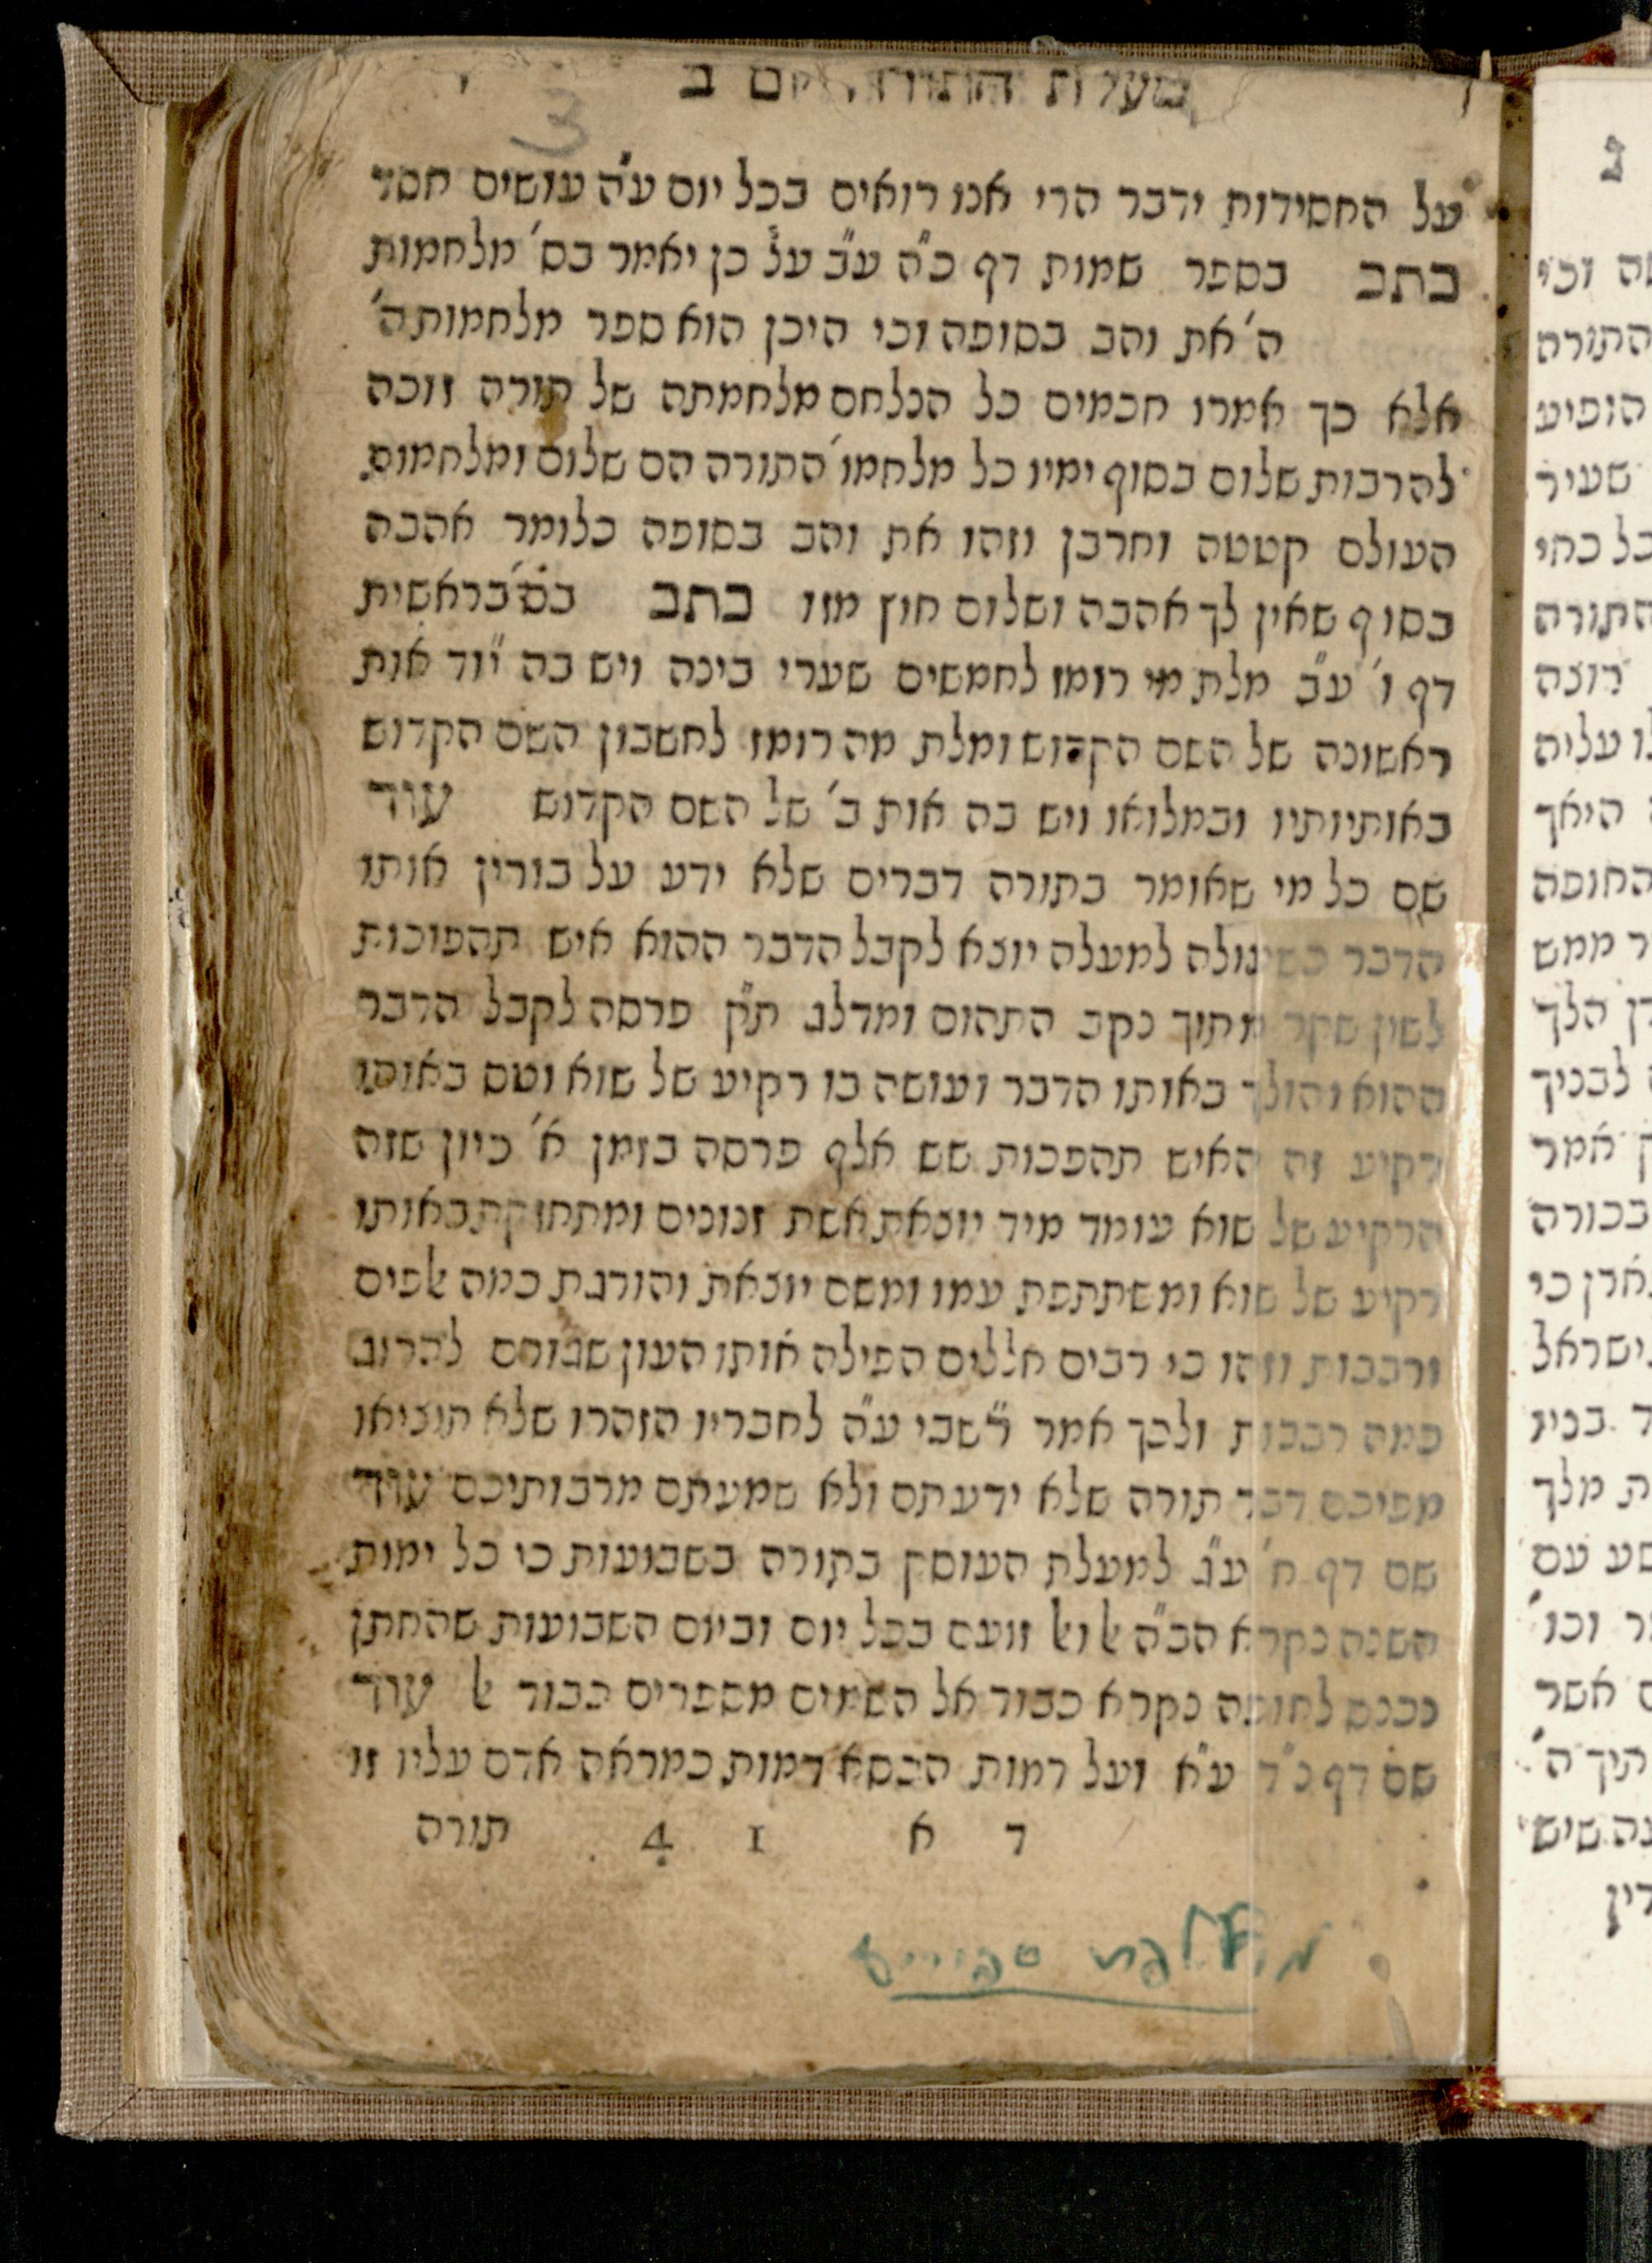 מעלות התורה יום ב
3
על החסידות ידבר הרי אנו רואים בכל יום ע״ה עושים חסד
כתב בספר שמות דף כ״ה ע״ב על כן יאמר בס׳ מלחמות
ה׳ את והב בסופה וכי היכן הוא ספר מלחמות ה׳
אלא כך אמרו חכמים כל הנלחם מלחמתה של תורה זוכה
להרבות שלום בסוף ימיו כל מלחמו׳ התורה הם שלום ומלחמות
העולם קטטה וחרבן וזהו את והב בסופה כלומר אהבה
בסוף שאין לך אהבה ושלום חוץ מזו כתב בס׳ בראשית
דף ו׳ ע״ב מלת מי רומז לחמשים שערי בינה ויש בה י״וד אות
ראשונה של השם הקדוש ומלת מה רומז לחשבון השם הקדוש
באותיותיו ובמלואו ויש בה אות ב׳ של השם הקדוש עוד
שם כל מי שאומר בתורה דברים שלא ידע על בוריין אותו
הדבר כשעולה למעלה יוצא לקבל הדבר ההוא איש תהפוכות
לשון שקר מתוך נקב התהום ומדלג ת״ק פרסה לקבל הדבר
ההוא והולך באותו הדבר ועושה בו רקיע של שוא וטס באותו
רקיע זה האיש תהפכות שש אלף פרסה בזמן א׳ כיון שזה
הרקיע של שוא עומד מיד יוצאת אשת זנונים ומתחזקת באותו
רקיע של שוא ומשתתפת עמו ומשם יוצאת והורגת כמה אלפים
ורבבות וזהו כי רבים חללים הפילה אותו העון שגורם להרוג
כמה רבבות ולכך אמר רשבי ע״ה לחבריו הזהרו שלא תוציאו
מפיכם דבר תורה שלא ידעתם ולא שמעתם מרבותיכם עוד
שם דף ח׳ ע״ג למעלת העוסק בתורה בשבועות כי כל ימות
השנה נקרא הב״ה אל ואל זועם בכל יום וביום השבועות שהחתן
נכנס לחופה נקרא כבוד אל השמים מספרים כבוד אל עוד
שם דף כ״ד ע״א ועל דמות הכסא דמות כמראה אדם עליו זו
ד א 1 4 תורה